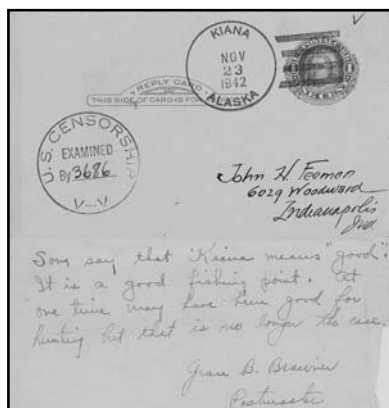 KIANA
NOV
23
1942
ALASKA
REPLY CARD
THIS SIDE OF CARD IS FOR
U.S. CENSORSHIP
EXAMINED
By 3686
V—V
John H. Feeman
6029 Woodward
Indianapolis
Ind
Some say that "Kiana means "good".
It is a good fishing point. At
one time may have been good for
hunting but that is no longer the case.
Grace B.
Postmaster